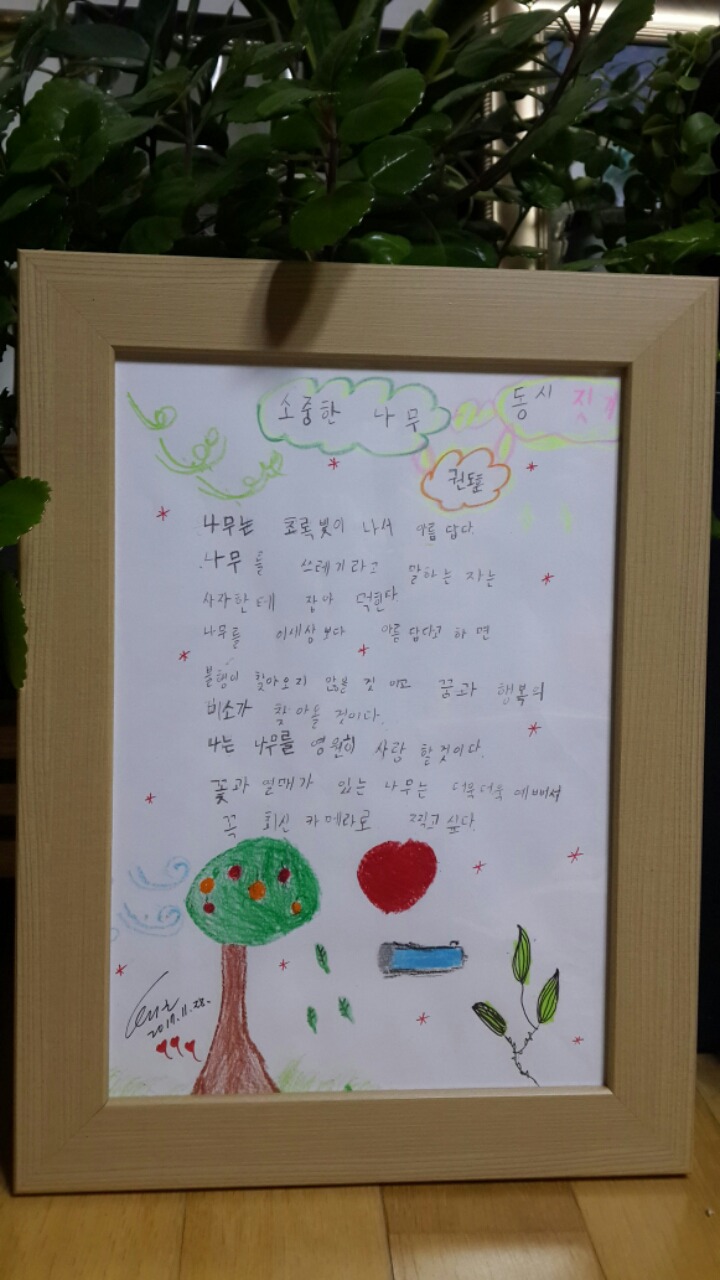 소중한 나무
동시 짓기
나무는 초록빛이 나서 아름답다.
나무를 쓰레기라고 말하는 자는
사자한테 잡아 먹힌다.
나무를 이세상보다 아름답다고 하면
불행이 찾아오리 않을 짓이고 꿈과 행복의
비소가 찾아올 것이다.
나는 나무를 영원히 사랑할것이다.
꽃과 열매가 있는 나무는 더욱더욱 예뻐서
꼭 최신 카메라로 찍고싶다.
2019.11.28.